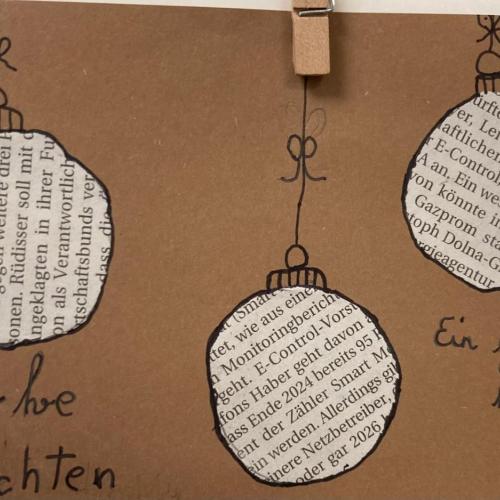 gegen weitere drei
onen. Rüdisser soll mit
ngeklagten in ihrer Fu
on als Verantwortlich
rtschaftsbunds ver
dass die
(Smar
tet, wie aus eine
Monitoringbericht
geht. E-Control-Vors
fons Haber geht davon a
ass Ende 2024 bereits 95 P
ent der Zähler Smart M
ein werden. Allerdings gi
inere Netzbetreiber,
oder gar 2026
ürfte
er, Ler
aftlicher
E-Control
A an. Ein we
von könnte
Gazprom sta
toph Dolna-G
rgieagentur
Ein
hve
chten